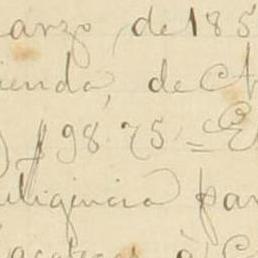 arzo, de 185
ienda, de
$98.75 = E
eligencia par